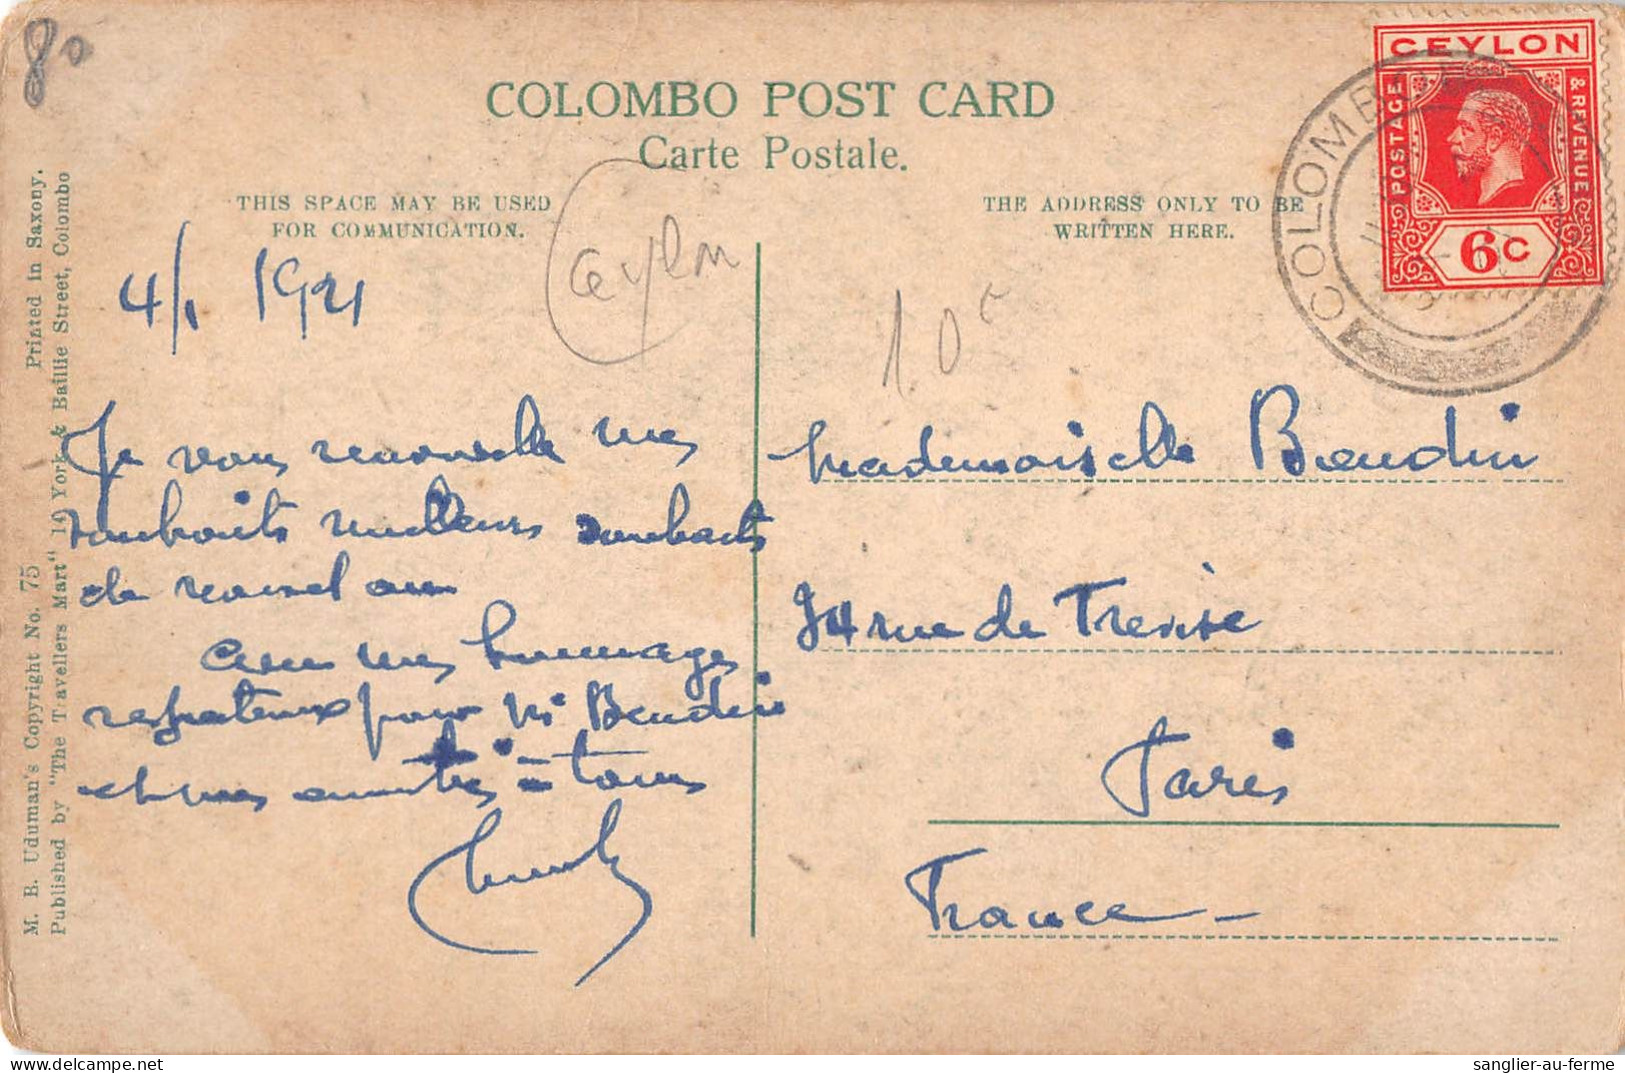 80
COLOMBO POST CARD
Carte Postale.
THIS SPACE MAY BE USED
FOR COMMUNICATION.
THE ADDRESS ONLY TO BE
WRITTEN HERE.
CEYLON
POSTAGE
& REVENUE
6c
COLOMBO
Ceylon
1.0c
4/1 1921
Je vous renouvelle mes
souhaits meilleurs souhaits
de nouvel an
avec mes hommages
respectueux pour Mr Beudin
et mes amitiés à tous
Mademoiselle Beudin
34 rue de Trevise
Paris
France
M. B. Uduman's Copyright No. 75 Printed in Saxony.
Published by "The Travellers Mart" 19 York & Baillie Street, Colombo
sanglier-au-ferme